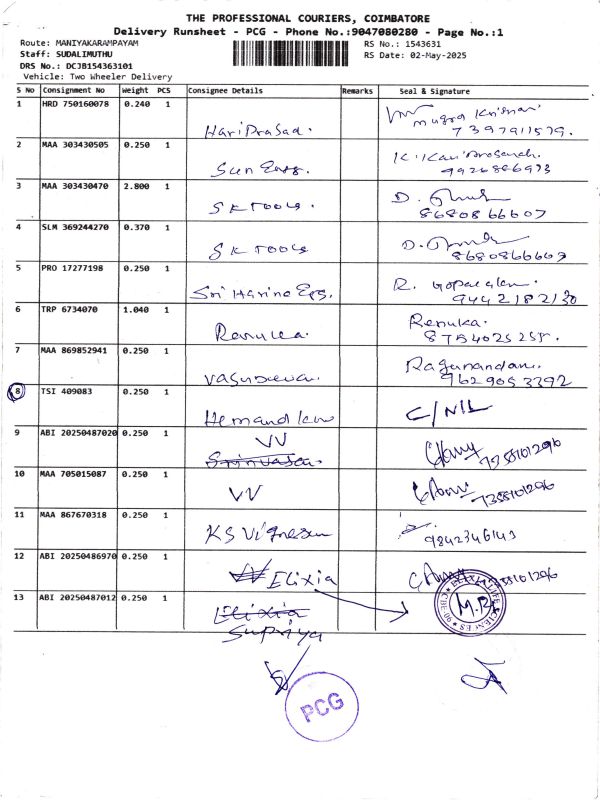 THE PROFESSIONAL COURIERS, COIMBATORE
Delivery Runsheet - PCG - Phone No.:9047080280 - Page No.:1
Route: MANIYAKARAMPAYAM
RS No.: 1543631
Staff: SUDALIMUTHU
RS Date: 02-May-2025
DRS No.: DCJB154363101
Vehicle: Two Wheeler Delivery
S No Consignment No Weight PCS Consignee Details Remarks Seal & Signature
1 HRD 750160078 0.240 1
HariPrasad.
7397911579.
2 MAA 303430505 0.250 1
Sun Engg.
9926886973
3 MAA 303430470 2.800 1
SK TOOLS.
D.
8680866607
4 SLM 369244270 0.370 1
SK TOOLS
D.
8680866609
5 PRO 17277198 0.250 1
Sri Harine Egs.
R. Gopalan
9442182130
6 TRP 6734070 1.040 1
Renuka.
Renuka.
8754025255.
7 MAA 869852941 0.250 1
Vasudevan.
Ragunandan.
9629053392
8 TSI 409083 0.250 1
C/NIL
9 ABI 20250487020 0.250 1
VV
Srinivasan.
7358101296
10 MAA 705015087 0.250 1
VV
7358101296
11 MAA 867670318 0.250 1
KS Vignesh
9842346143
12 ABI 20250486970 0.250 1
VV Elixia
7358101296
13 ABI 20250487012 0.250 1
Elixia
Supriya
ELIXIA LIFE SCIENCES
PCG